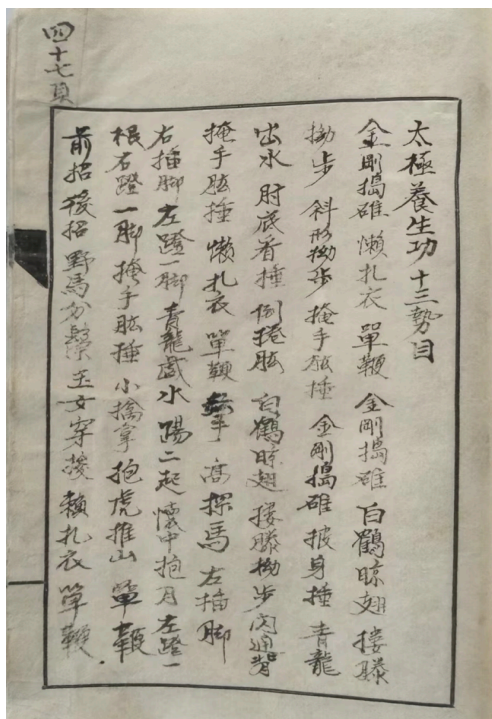 四十七頁
太極養生功十三勢目
金剛搗碓 懶扎衣 單鞭 金剛搗碓 白鶴晾翅 摟膝
拗步 斜形拗步 掩手肱捶 金剛搗碓 披身捶 青龍
出水 肘底看捶 倒捲肱 白鶴晾翅 摟膝拗步 閃通背
掩手肱捶 懶扎衣 單鞭 雲手 高探馬 左插腳
右插腳 左蹬一腳 青龍戲水 踢二起 懷中抱月 左蹬一
根 右蹬一腳 掩手肱捶 小擒拿 抱虎推山 單鞭
前招 後招 野馬分鬃 玉女穿梭 懶扎衣 單鞭